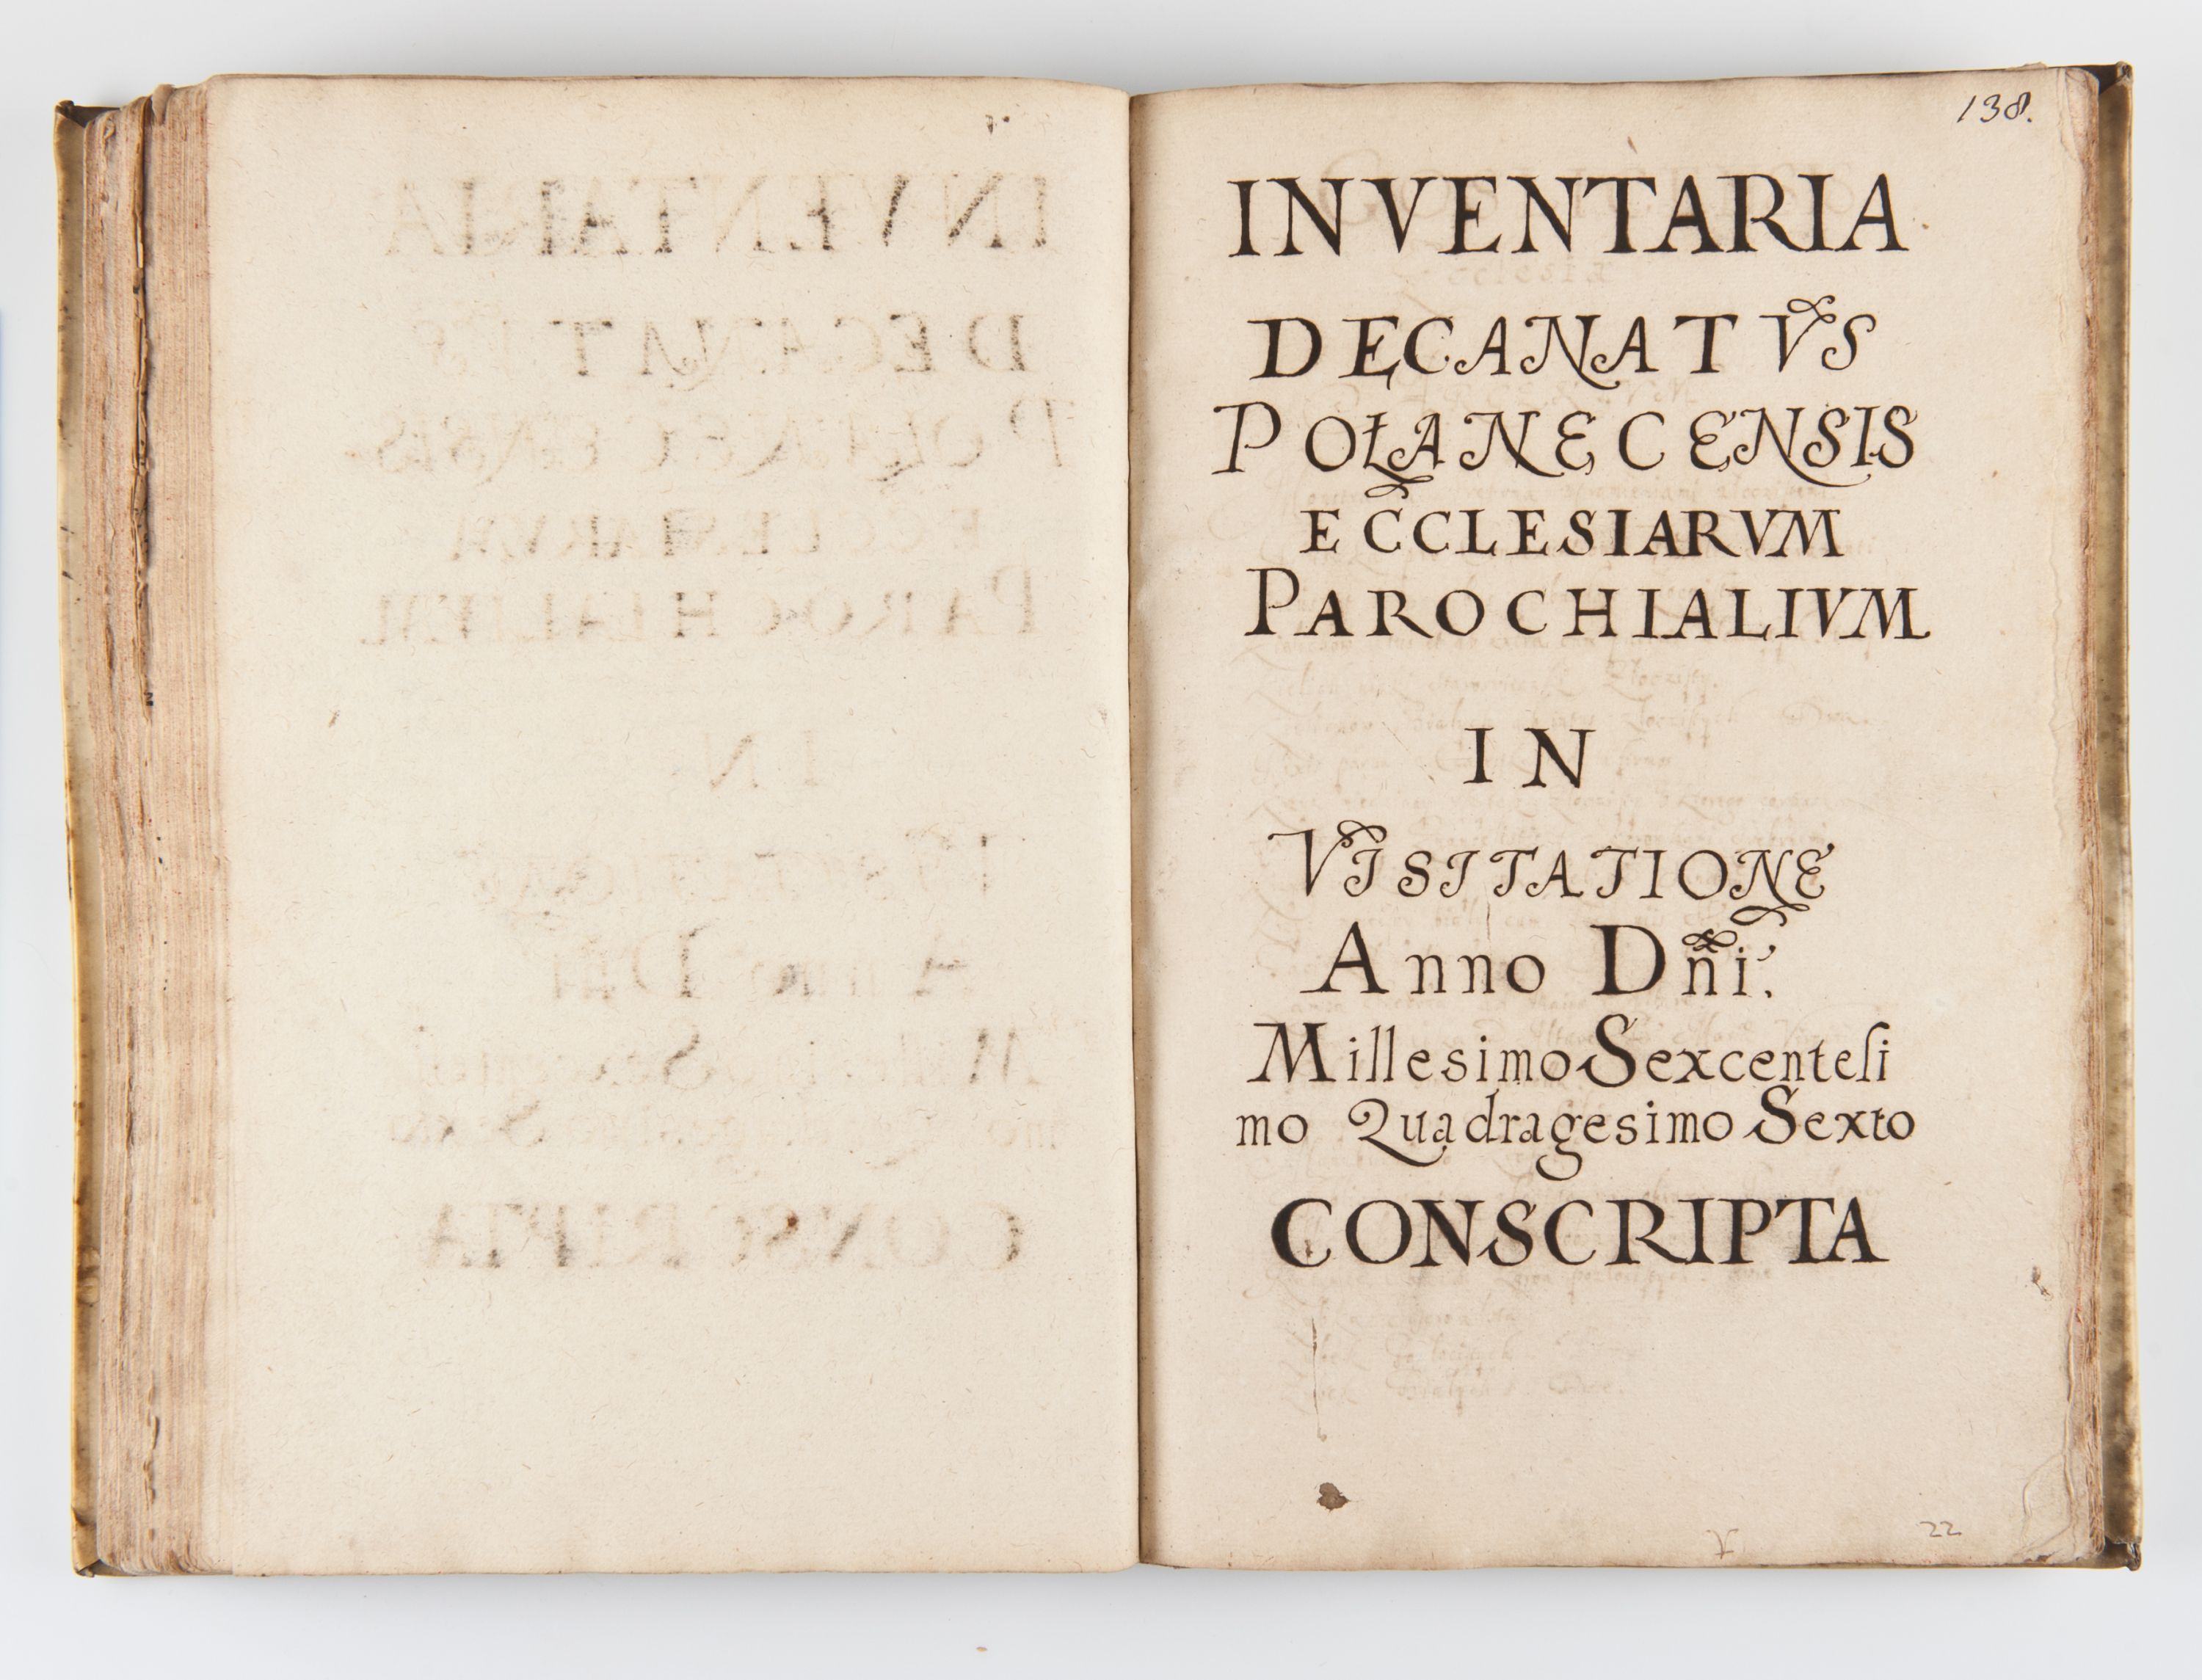 138.
INVENTARIA
DECANATVS
POŁANECENSIS
ECCLESIARVM
PAROCHIALIVM
IN
VISITATIONE
Anno Dñi.
Millesimo Sexcenteſi
mo Quadragesimo Sexto
CONSCRIPTA
22